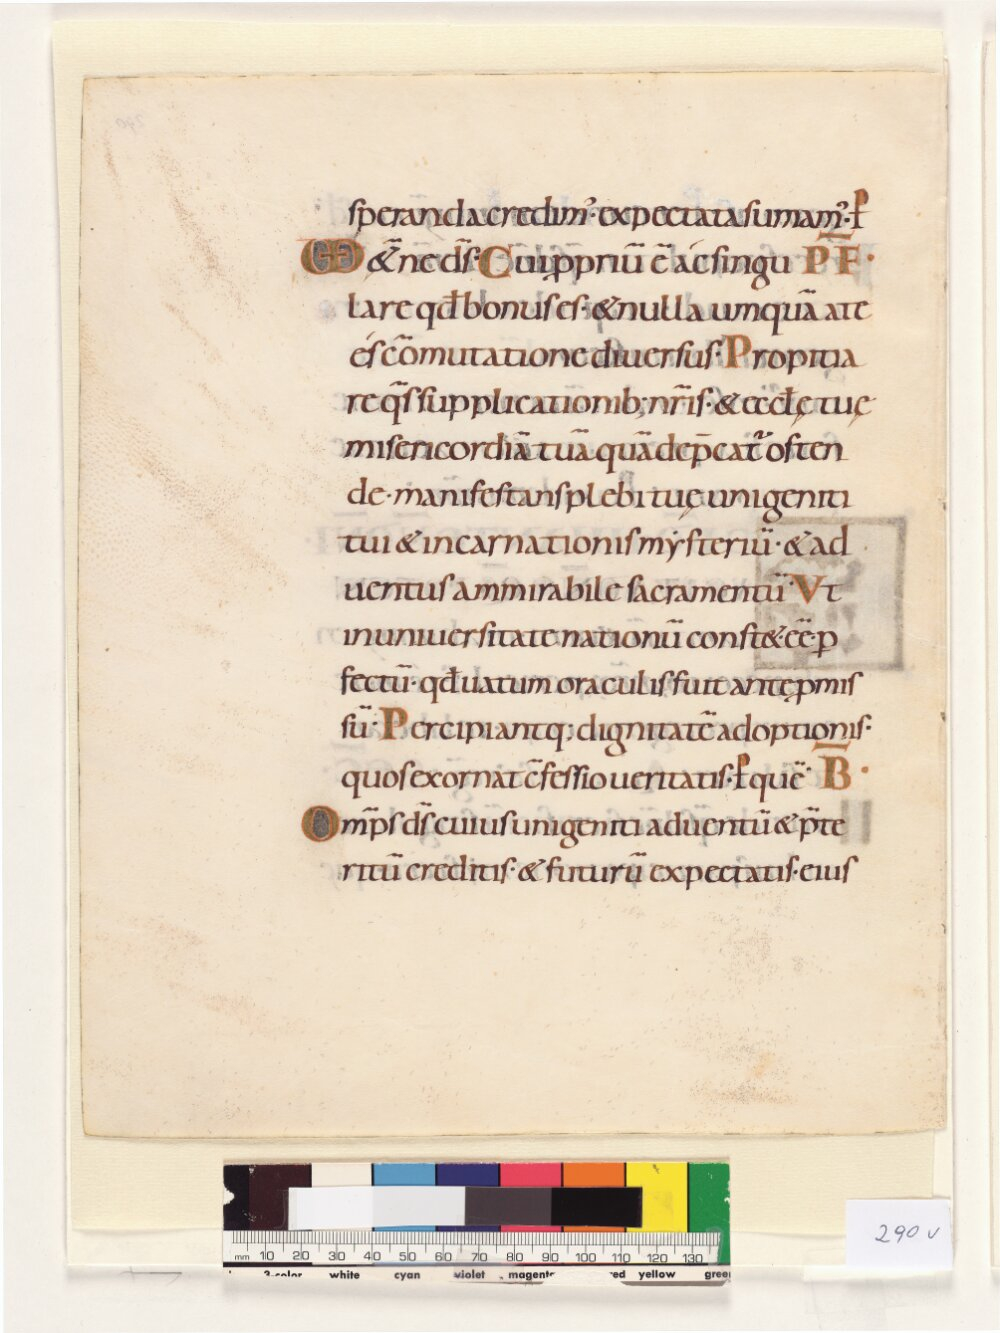 speranda credim᾽· expectata sumam᾽· p̄
UD &̃ne d̄s· Cui ꝓpriū ē ac singu PF·
lare qđ bonus es· & nulla umquā a te
es cōmutatione diuersus· Propitia
re q̄s supplicationib; nr̄is· & ęccłę tuę
misericordiā tuā quā dep̄cat᾽ osten
de· manifestans plebi tuę unigeniti
tui & incarnationis mẏsteriū· & ad
uentus ammirabile sacramentū· Vt
in uniuersitate nationū const&· eē p
fectū· qđ uatum oraculis fuit ante ꝓmis
sū· Percipiantq; dignitatē adoptionis·
quos exornat c̄fessio ueritatis· p̄ quē· B·
Omp̄s d̄s cuius unigeniti aduentū & p̄te
ritū creditis· & futurū expectatis· eius
290 v
mm 10 20 30 40 50 60 70 80 90 100 110 120 130
3-color white cyan violet magenta red yellow green